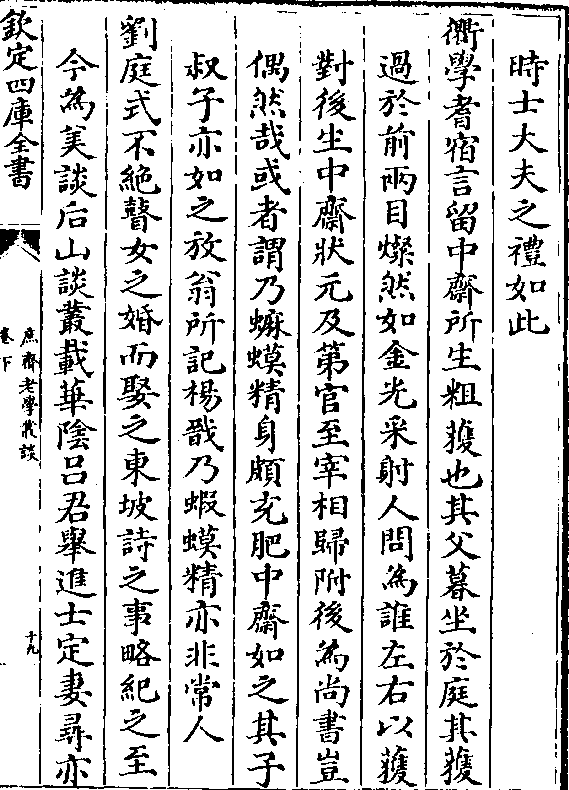 時士大夫之禮如此
衢學耆宿言留中齋所生粗䕶也其父暮坐於庭其䕶
過於前兩目燦然如金光采射人問為誰左右以䕶
對後生中齋狀元及第官至宰相歸附後為尚書豈
偶然哉或者謂乃蟆蟆精身頗充肥中齋如之其子
叔子亦如之放翁所記楊戩乃蝦蟆精亦非常人
劉庭式不絶瞽女之婚而娶之東坡詩之事略紀之至
今為美談后山談叢載華隂吕君舉進士定妻尋亦
欽定四庫全書
庶齋老學叢談
卷下
十九